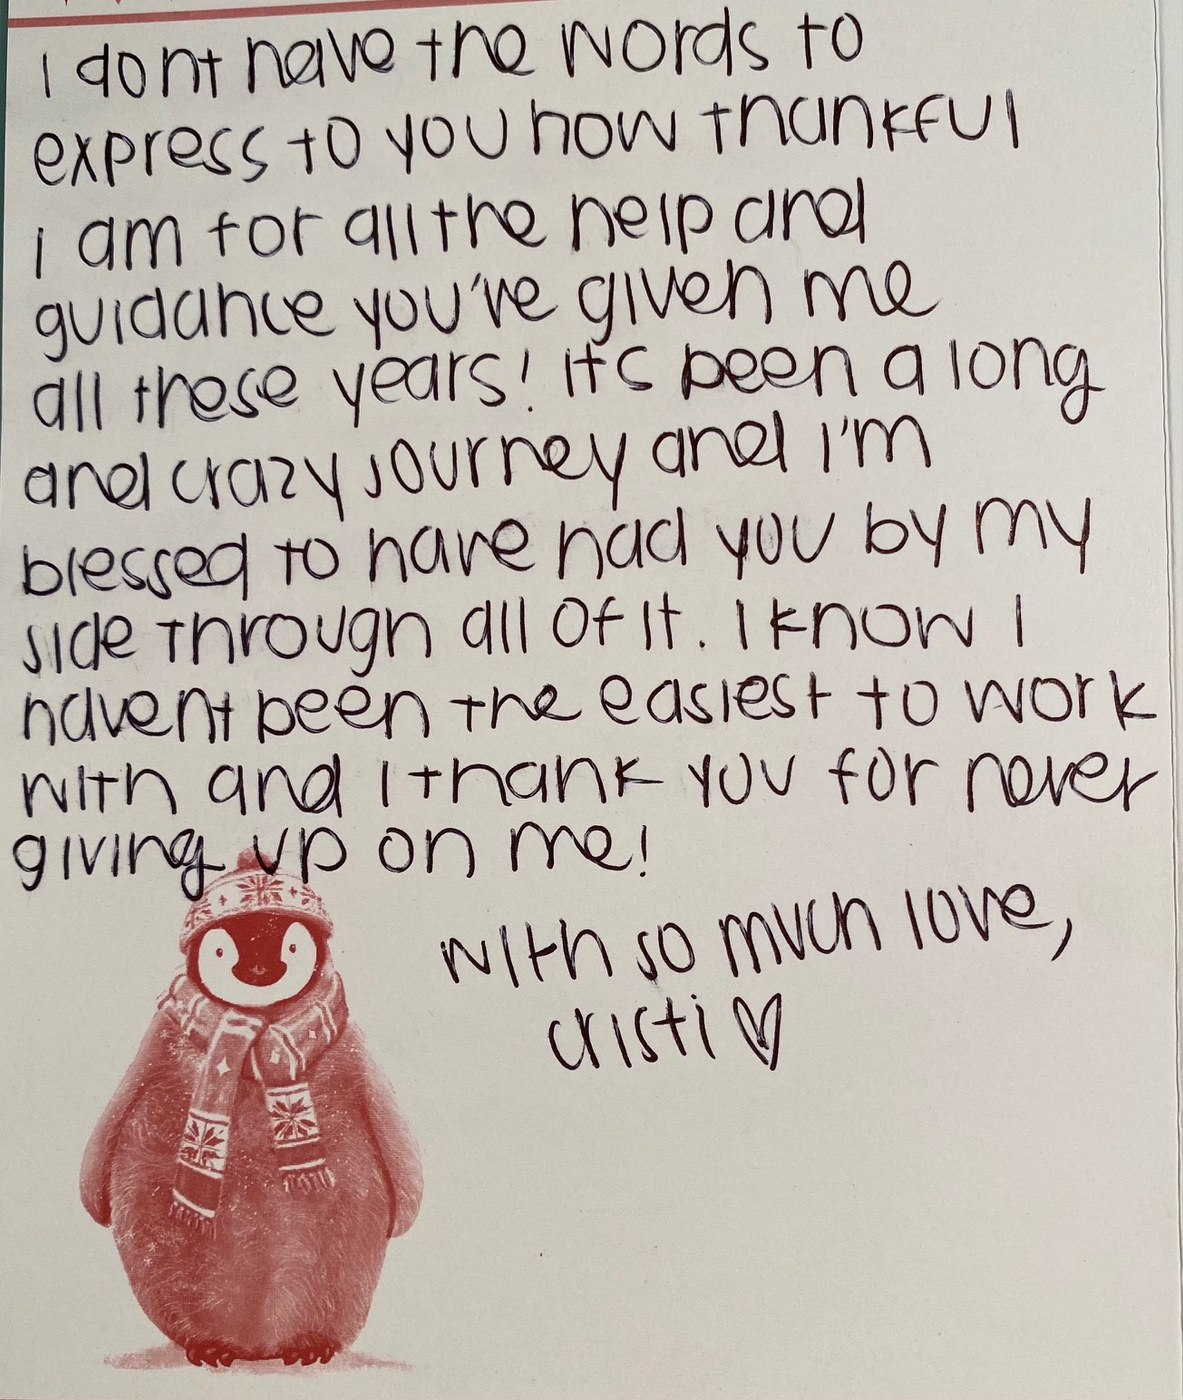 I dont have the words to
express to you how thankful
I am for all the help and
guidance you've given me
all these years! Its been a long
and crazy journey and I'm
blessed to have had you by my
side through all of it. I know I
havent been the easiest to work
with and I thank you for never
giving up on me!
with so much love,
cristi ♡